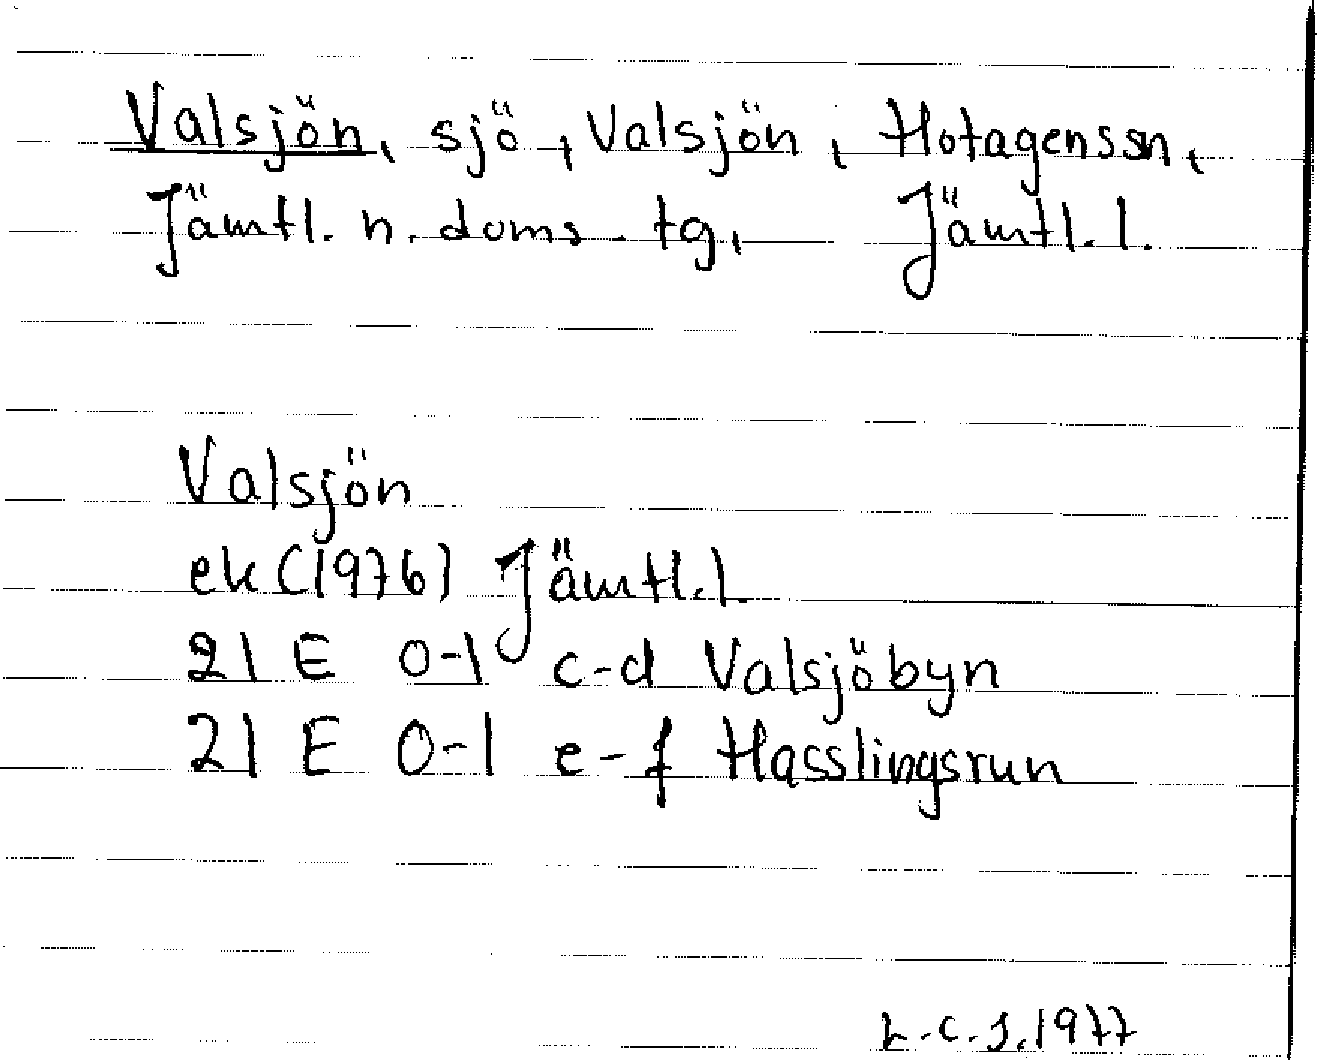 Valsjön, sjö, Valsjön, Hotagenssn,
Jämtl. n. doms. tg, Jämtl. l.
Valsjön
ek (1976) Jämtl. l.
21 E 0-1 c-d Valsjöbyn
21 E 0-1 e-f Hasslingsrun
L.C.J. 1977